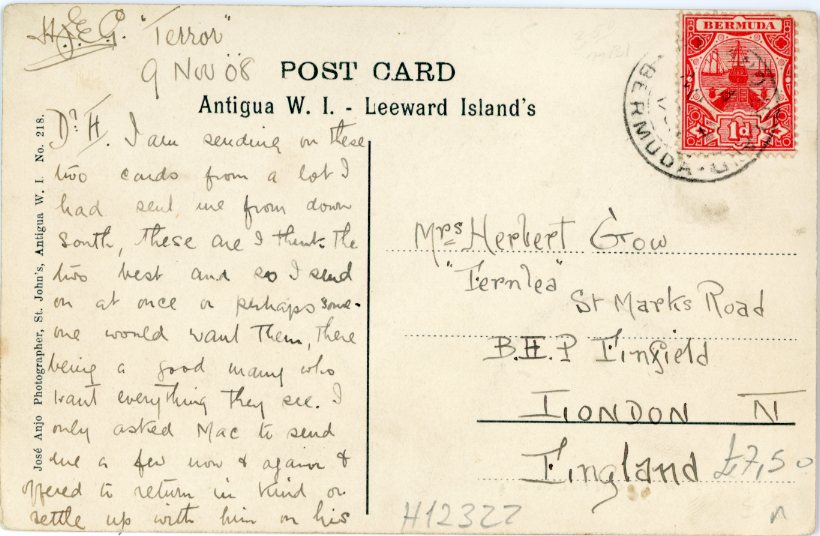 H.J.E.G. "Terror"
9 Nov 08
POST CARD
Antigua W. I. - Leeward Island's
Dr H. I am sending on these
two cards from a lot I
had sent me from down
South, these are I think the
two best and so I send
on at once or perhaps some-
one would want them, there
being a good many who
want everything they see. I
only asked Mac to send
me a few now & again &
offered to return in kind or
settle up with him on his
José Anjo Photographer, St. John's, Antigua W. I. No. 218.
BERMUDA
1d
BERMUDA
Mrs Herbert Gow
"Fernlea"
St Marks Road
B.H.P Enfield
LONDON N
England
£7,50
H12322
n